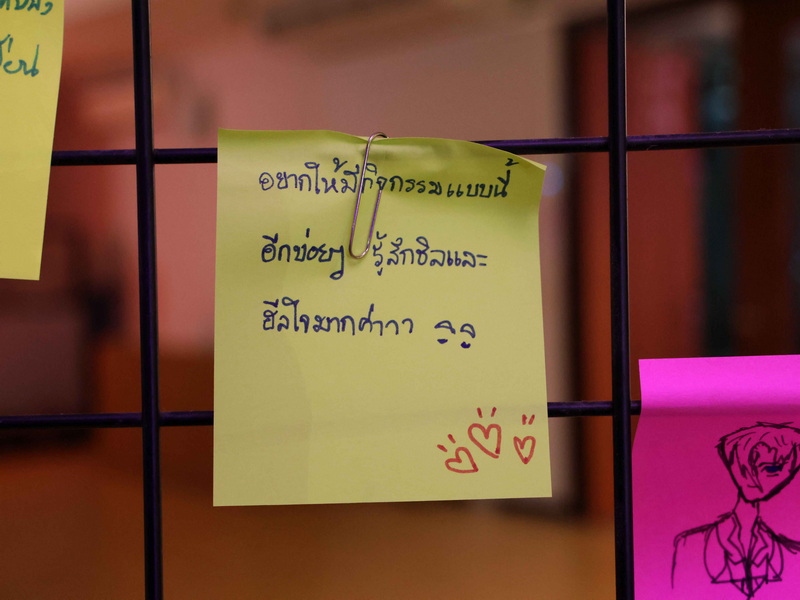 อยากให้มีกิจกรรมแบบนี้
อีกบ่อยๆ รู้สึกชิลและ
ฮีลใจมากค่าาา